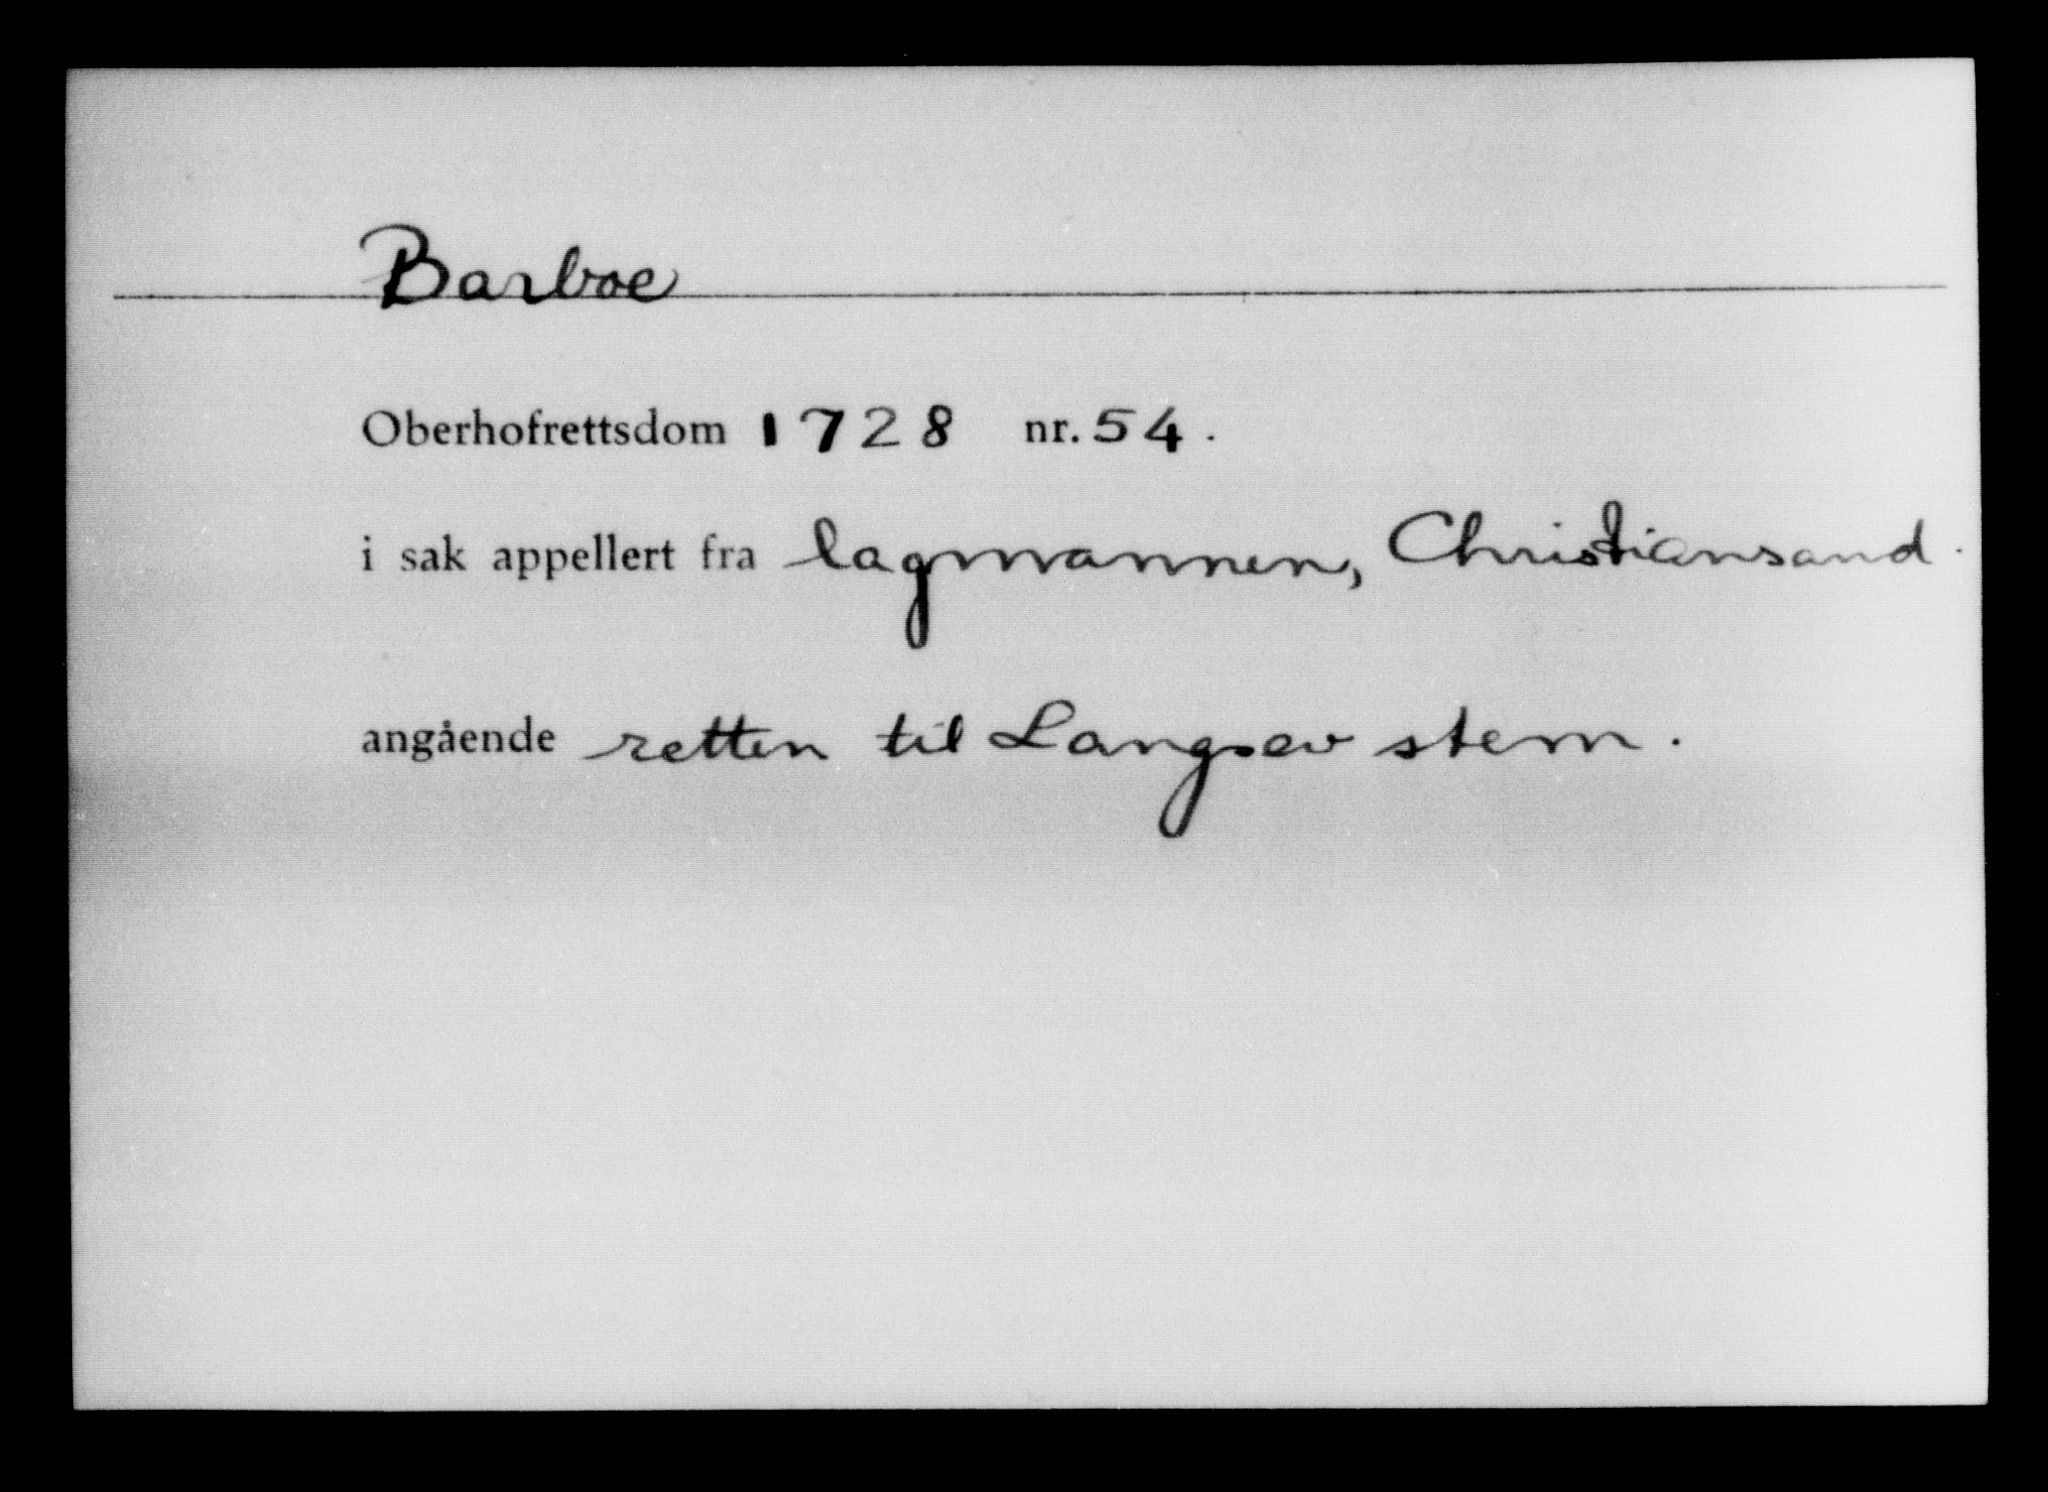 Barboe
Oberhofrettsdom 1728 nr. 54.
i sak appellert fra lagmannen, Christiansand.
angående retten til Langsev stem.